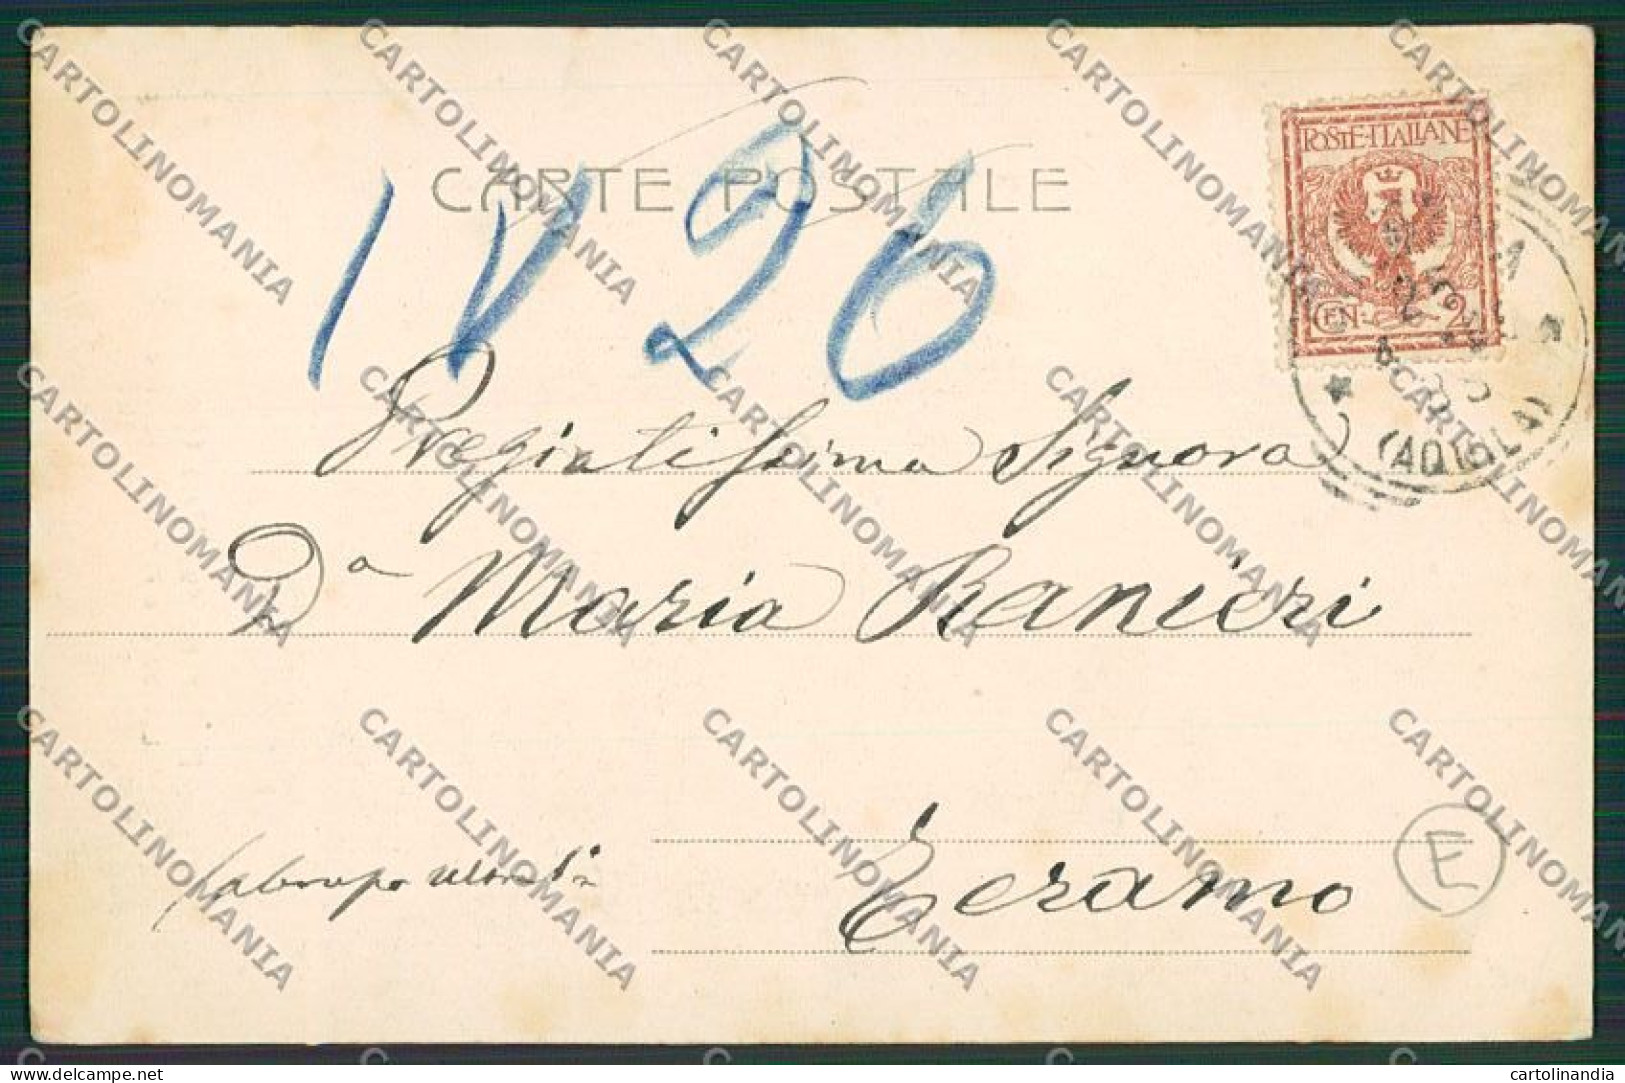 CARTE POSTALE
1 V 26
POSTE·ITALIANE
CEN· 2
(AQUILA)
Pregiatissima Signora
Da Maria Ranieri
Teramo
E
CARTOLINOMANIA
www.delcampe.net
cartolinandia